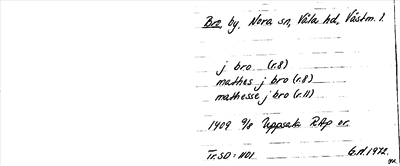 Bro, by, Nora sn, Våla hd, Västm. l.
j bro (r.8)
mathes j bro (r.8)
mathesse j bro (r.11)
1409 9/8 Uppsala RAp or.
Tr. SD: 1101
1972.